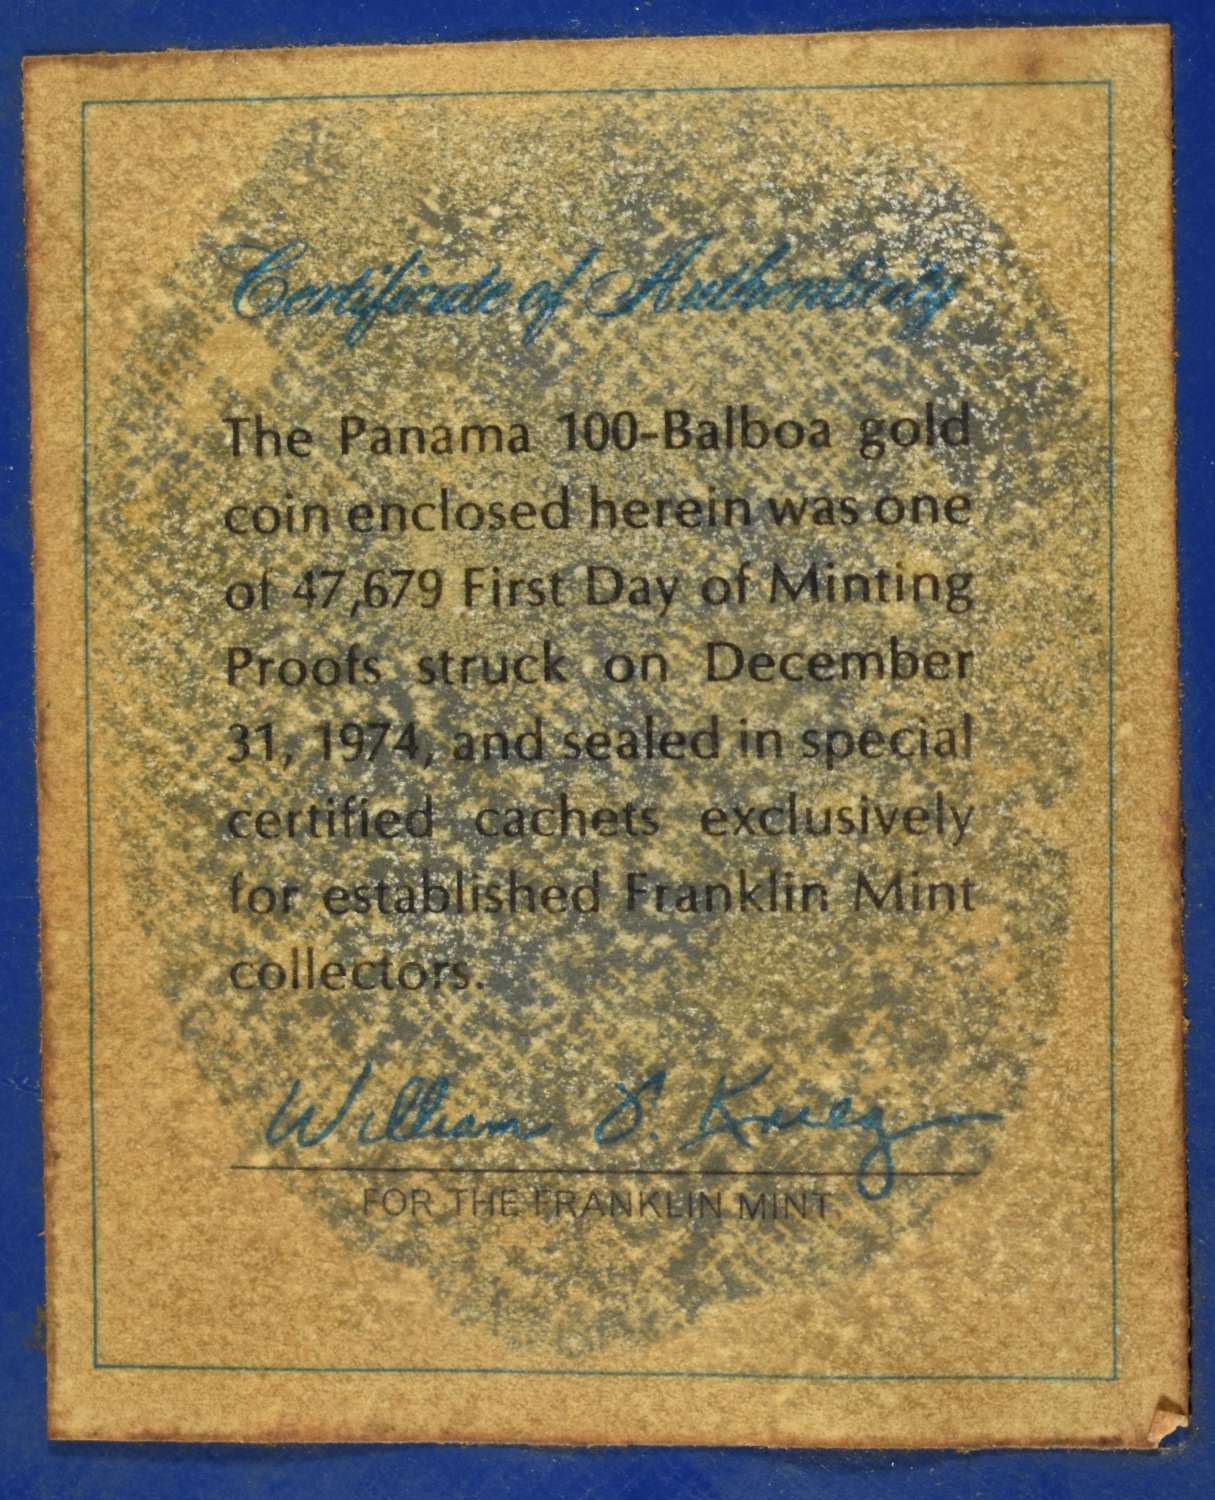 Certificate of Authenticity
The Panama 100-Balboa gold
coin enclosed herein was one
of 47,679 First Day of Minting
Proofs struck on December
31, 1974, and sealed in special
certified cachets exclusively
for established Franklin Mint
collectors.
William
FOR THE FRANKLIN MINT